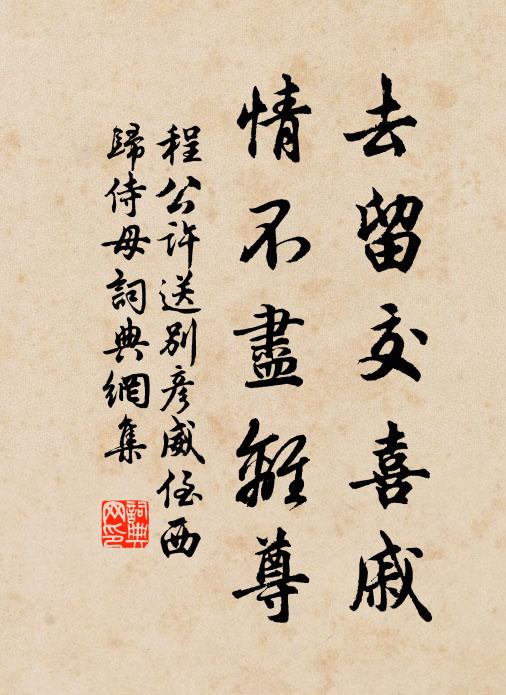 去留交喜戚
情不盡離尊
程公許送別彥威侄西
歸侍母詞典網集
詞典網印